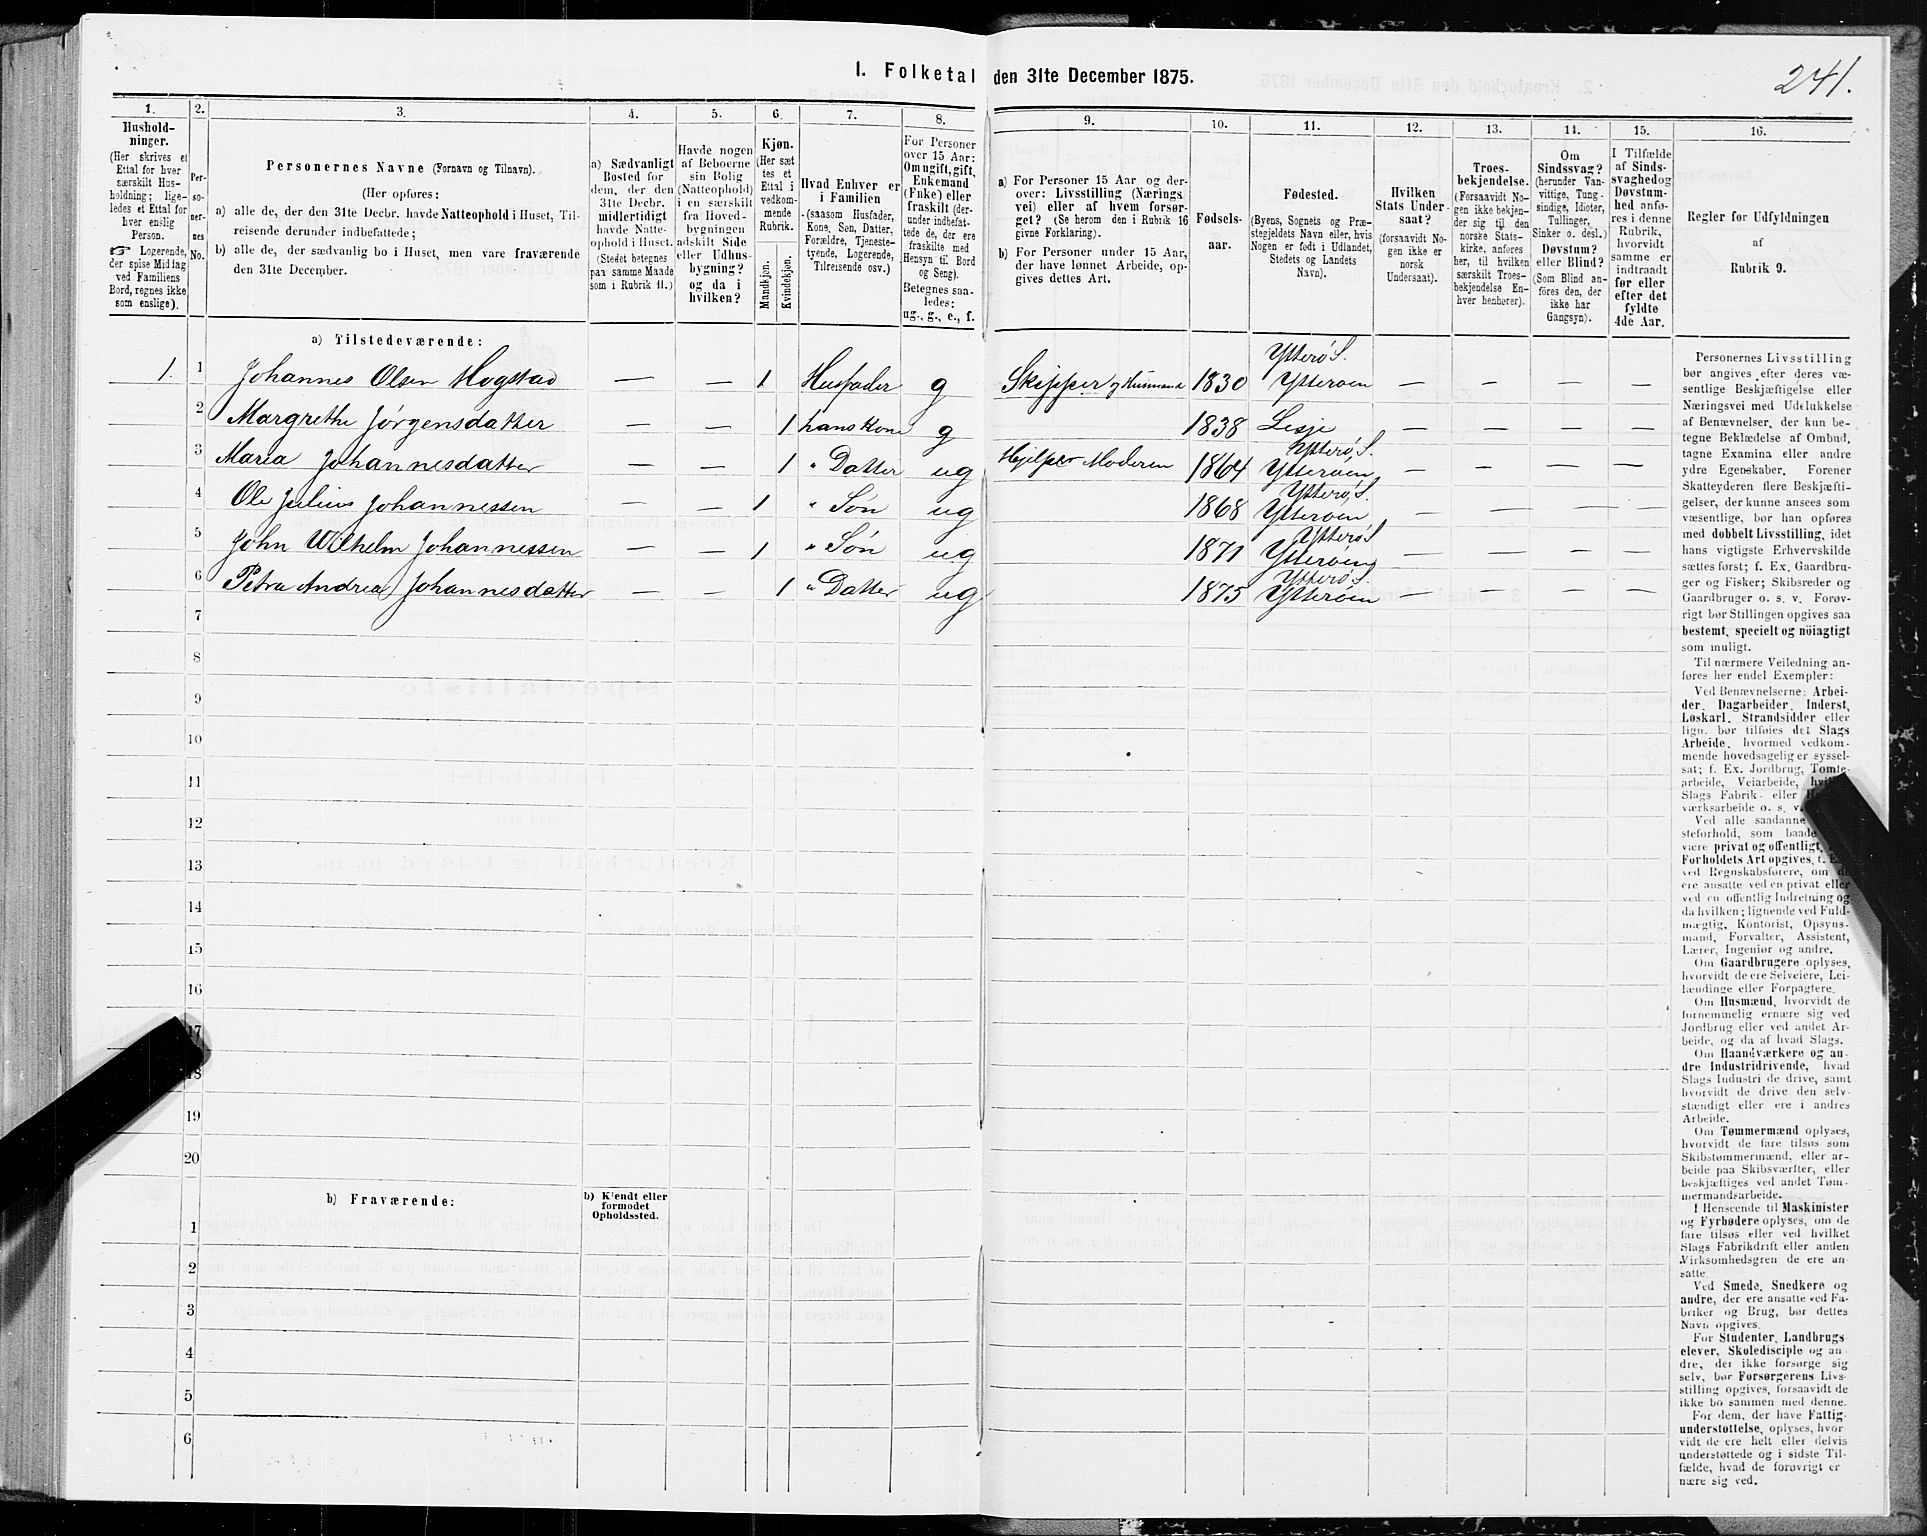 1. Folketal den 31te December 1875.
241.
1.
Hushold-
ninger.
(Her skrives et
Ettal for hver
særskilt Hus-
holdning; lige-
ledes et Ettal for
hver enslig
Person.
☞ Logerende,
der spise Middag
ved Familiens
Bord, regnes ikke
som enslige).
2.
Per-
so-
ner-
nes
No.
3.
Personernes Navne (Fornavn og Tilnavn).
(Her opføres:
a) alle de, der den 31te Decbr. havde Natteophold i Huset, Til-
reisende derunder indbefattede;
b) alle de, der sædvanlig bo i Huset, men vare fraværende
den 31te December.
4.
a) Sædvanligt
Bosted for
dem, der den
31te Decbr.
midlertidigt
havde Natte-
ophold i Huset.
(Stedet betegnes
paa samme Maade
som i Rubrik 11.)
5.
Havde nogen
af Beboerne
sin Bolig
(Natteophold)
i en særskilt
fra Hoved-
bygningen
adskilt Side
eller Udhus-
bygning?
og da i
hvilken?
6.
Kjøn.
(Her sæt-
tes et
Ettal i
vedkom-
mende
Rubrik.
Mandkjøn.
Kvindekjøn.
7.
Hvad Enhver er
i Familien
(saasom Husfader,
Kone, Søn, Datter,
Forældre, Tjeneste-
tyende, Logerende,
Tilreisende osv.)
8.
For Personer
over 15 Aar:
Om ugift, gift,
Enkemand
(Enke) eller
fraskilt (der-
under indbefat-
tede de, der ere
fraskilte med
Hensyn til Bord
og Seng).
Betegnes saa-
ledes:
ug., g., e., f.
9.
a) For Personer 15 Aar og der-
over: Livsstilling (Nærings-
vei) eller af hvem forsør-
get? (Se herom den i Rubrik 16
givne Forklaring).
b) For Personer under 15 Aar,
der have lønnet Arbeide, op-
gives dettes Art.
10.
Fødsels-
aar.
11.
Fødested.
(Byens, Sognets og Præ-
stegjeldets Navn eller, hvis
Nogen er født i Udlandet,
Stedets og Landets
Navn).
12.
Hvilken
Stats Under-
saat?
(forsaavidt No-
gen ikke er
norsk
Undersaat).
13.
Troes-
bekjendelse.
(Forsaavidt No-
gen ikke bekjen-
der sig til den
norske Stats-
kirke, anføres
her, til hvilken
særskilt Troes-
bekjendelse En-
hver henhører).
14.
Om
Sindssvag?
(herunder Van-
vittige, Tung-
sindige, Idioter,
Tullinger,
Sinker o. desl.)
Døvstum?
eller Blind?
(Som Blind an-
føres den, der
ikke har
Gangsyn).
15.
I Tilfælde
af Sinds-
svaghed og
Døvstum-
hed anfø-
res i denne
Rubrik,
hvorvidt
samme er
indtraadt
før eller
efter det
fyldte
4de Aar.
16.
Regler for Udfyldningen
af
Rubrik 9.
a) Tilstedeværende:
1. 1 Johannes Olsen Hogstad — — 1 Husfader g Skipper og Husmand 1830 Ytterø S. Ytterøen — — — —
2 Margrethe Jørgensdatter — — 1 hans Kone g 1838 Lesje — — — —
3 Maria Johannesdatter — — 1 " Datter ug Hjelper Moderen 1864 Ytterø S. Ytterøen — — — —
4 Ole Julius Johannessen — — 1 " Søn ug 1868 Ytterø S. Ytterøen — — — —
5 John Wilhelm Johannessen — — 1 " Søn ug 1871 Ytterø S Ytterøen — — — —
6 Petra Andrea Johannesdatter — — 1 " Datter ug 1875 Ytterø S. Ytterøen — — — —
7
8
9
10
11
12
13
14
15
16
17
18
19
20
b) Fraværende:
b) Kjendt eller
formodet
Opholdssted.
1
2
3
4
5
6
Personernes Livsstilling
bør angives efter deres væ-
sentlige Beskjæftigelse eller
Næringsvei med Udelukkelse
af Benævnelser, der kun be-
tegne Beklædelse af Ombud,
tagne Examina eller andre
ydre Egenskaber. Forener
Skatteyderen flere Beskjæfti-
gelser, der kunne ansees som
væsentlige, bør han opføres
med dobbelt Livsstilling, idet
hans vigtigste Erhvervskilde
sættes først; f. Ex. Gaardbru-
ger og Fisker; Skibsreder og
Gaardbruger o. s. v. Forøv-
rigt bør Stillingen opgives saa
bestemt, specielt og nøiagtigt
som muligt.
Til nærmere Veiledning an-
føres her endel Exempler:
Ved Benævnelserne: Arbei-
der, Dagarbeider, Inderst,
Løskarl, Strandsidder eller
lign. bør tilføies det Slags
Arbeide, hvormed vedkom-
mende hovedsagelig er syssel-
sat; f. Ex. Jordbrug, Tomte-
arbeide, Veiarbeide,
Slags Fabrik- eller
værksarbeide o. s. v.
Ved alle saadanne
steforhold, som baade
være privat og offentligt,
Forholdets Art opgives, f. E
ved Regnskabsførere, om de
ere ansatte ved en privat eller
ved en offentlig Indretning og
da hvilken; lignende ved Fuld-
mægtig, Kontorist, Opsyns-
mand, Forvalter, Assistent,
Lærer, Ingeniør og andre.
Om Gaardbrugere oplyses,
hvorvidt de ere Selveiere, Lei-
lændinge eller Forpagtere.
Om Husmænd, hvorvidt de
fornemmelig ernære sig ved
Jordbrug eller ved andet Ar-
beide, og da af hvad Slags.
Om Haandværkere og an-
dre Industridrivende, hvad
Slags Industri de drive, samt
hvorvidt de drive den selv-
stændigt eller ere i andres
Arbeide.
Om Tømmermænd oplyses,
hvorvidt de fare tilsøs som
Skibstømmermænd, eller ar-
beide paa Skibsværfter, eller
beskjæftiges ved andet Tøm-
mermandsarbeide.
I Henseende til Maskinister
og Fyrbødere oplyses, om de
fare tilsøs eller ved hvilket
Slags Fabrikdrift eller anden
Virksomhedsgren de ere an-
satte.
Ved Smede, Snedkere og
andre, der ere ansatte ved Fa-
briker og Brug, bør dettes
Navn opgives.
For Studenter, Landbrugs-
elever, Skoledisciple og an-
dre, der ikke forsørge sig
selv, bør Forsørgerens Livs-
stilling opgives, forsaavidt de
ikke bo sammen med denne.
For dem, der have Fattig-
understøttelse, oplyses, hvor-
vidt de ere helt eller delvis
understøttede og i sidste Til-
fælde, hvad de forøvrigt er
nære sig ved.